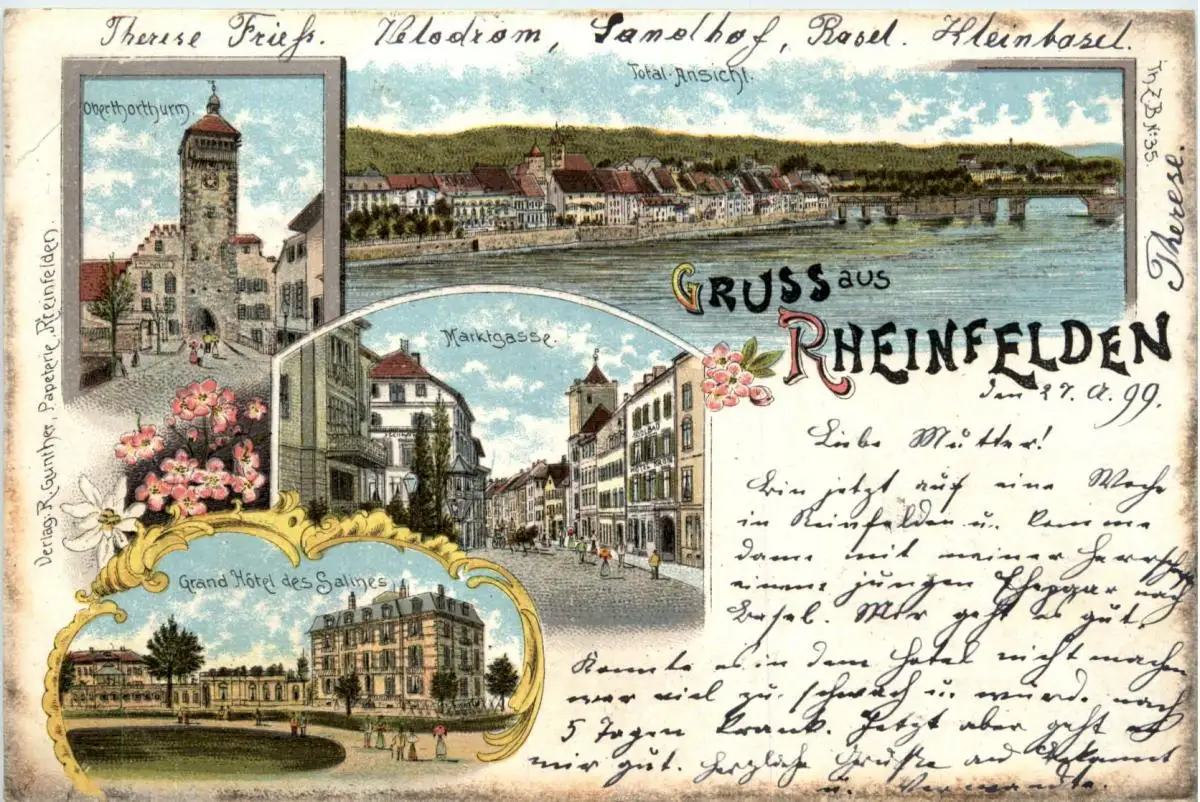 Therese Frieß. Velodrom, Sandhof, Basel. Kleinbasel.
Oberthorthurm.
Total-Ansicht.
Th. Z. B. No 35.
Therese.
Verlag R. Gunther, Papeterie, Rheinfelden.
GRUSS aus
RHEINFELDEN
Marktgasse.
SOOLBAD
Grand Hôtel des Salines
den 27. A. 99.
Liebe Mutter!
Bin jetzt auf eine Woche
in Reinfelden u. komme
dann mit meiner Herrschaft
einem jungen Ehepaar nach
Basel. Mir geht es gut.
Konnte es in dem Hotel nicht machen
war viel zu schwach u. wurde nach
5 Tagen krank. Jetzt aber geht es
mir gut. Herzliche Grüße an Bekannte
u. Verwandte.